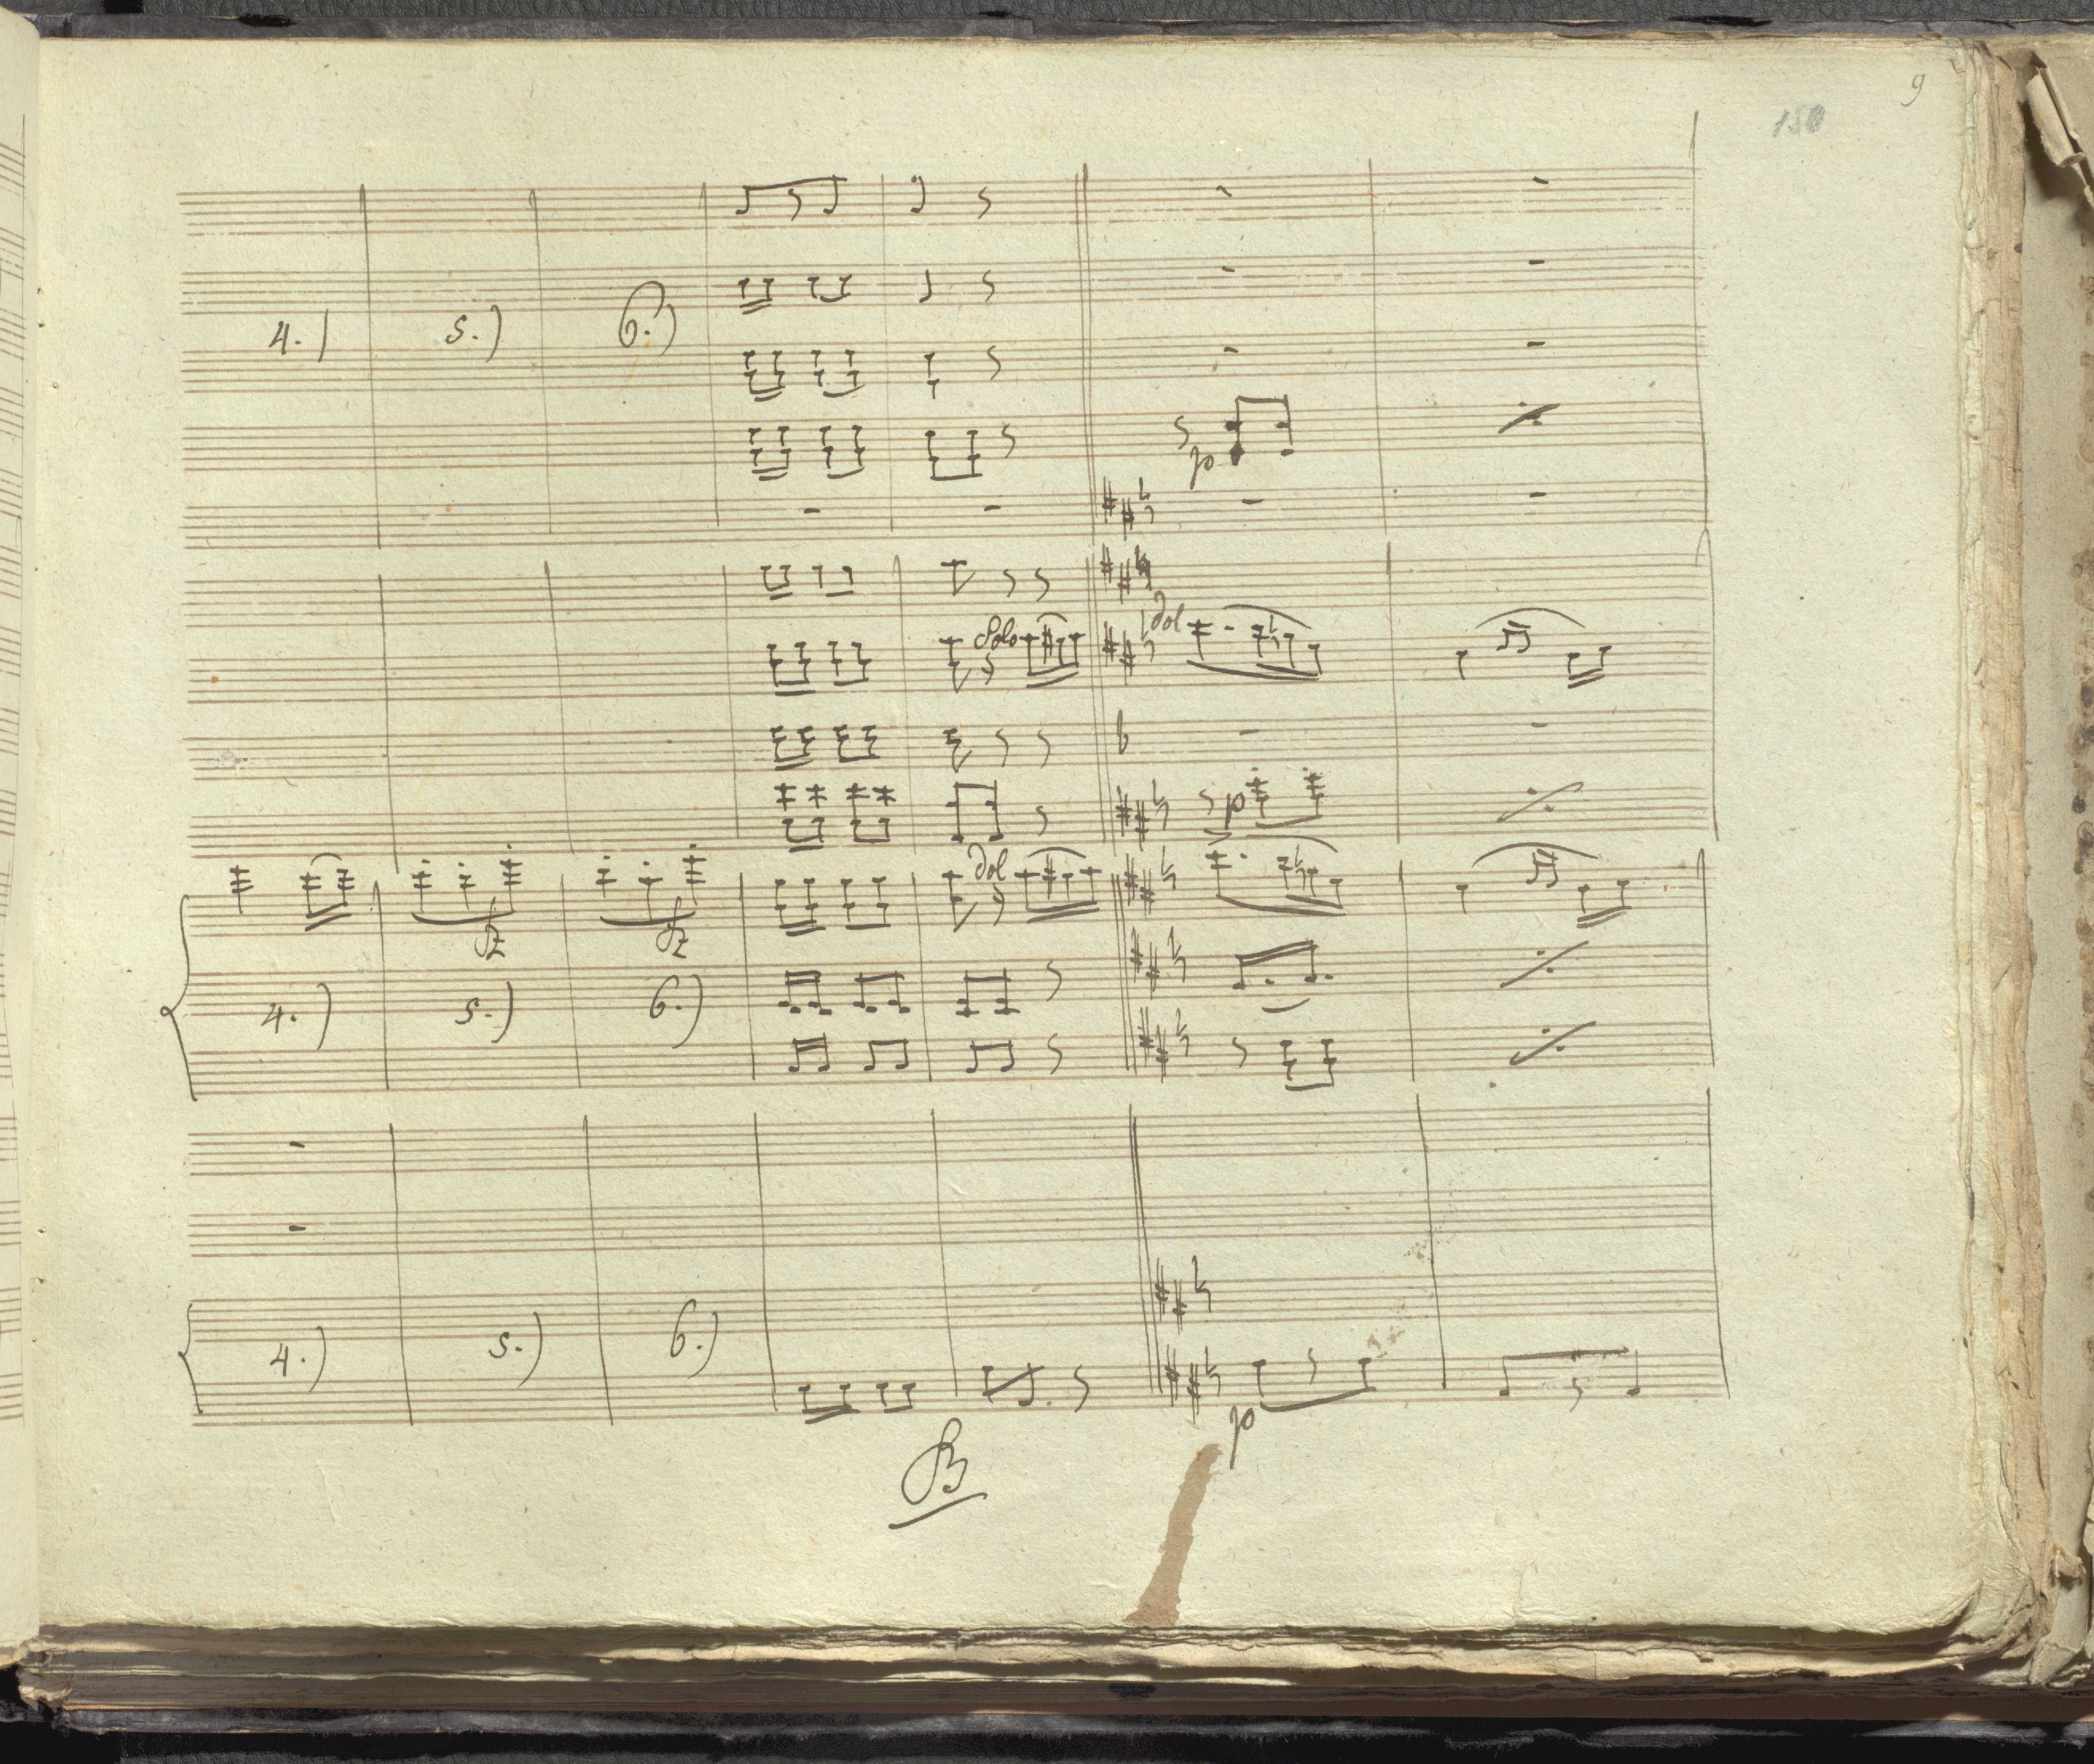 9
150
4.) 5.) 6.)
p
Solo dol
p
dol
fz fz
4.) 5.) 6.)
4.) 5.) 6.)
p
B